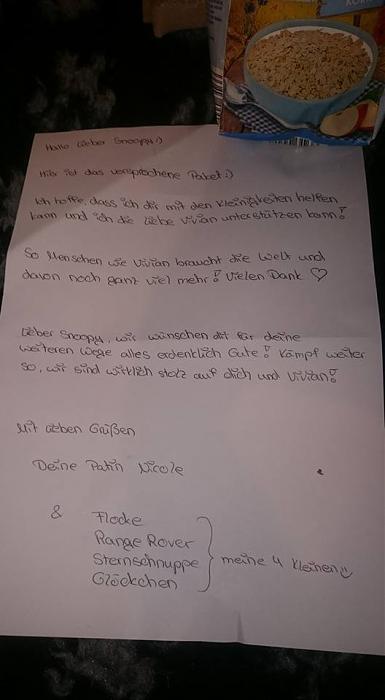 Hallo lieber Snoopy:)
Hier ist das versprochene Paket:)
Ich hoffe, dass ich dir mit den Kleinigkeiten helfen
kann und ich die liebe Vivian unterstützen kann!
So Menschen wie Vivian braucht die Welt und
davon noch ganz viel mehr! Vielen Dank ♡
Lieber Snoopy, wir wünschen dir für deine
weiteren Wege alles erdenklich Gute! Kämpf weiter
so, wir sind wirklich stolz auf dich und Vivian!
Mit lieben Grüßen
Deine Patin Nicole
& Flocke
Range Rover
Sternschnuppe
Glöckchen
meine 4 Kleinen:)